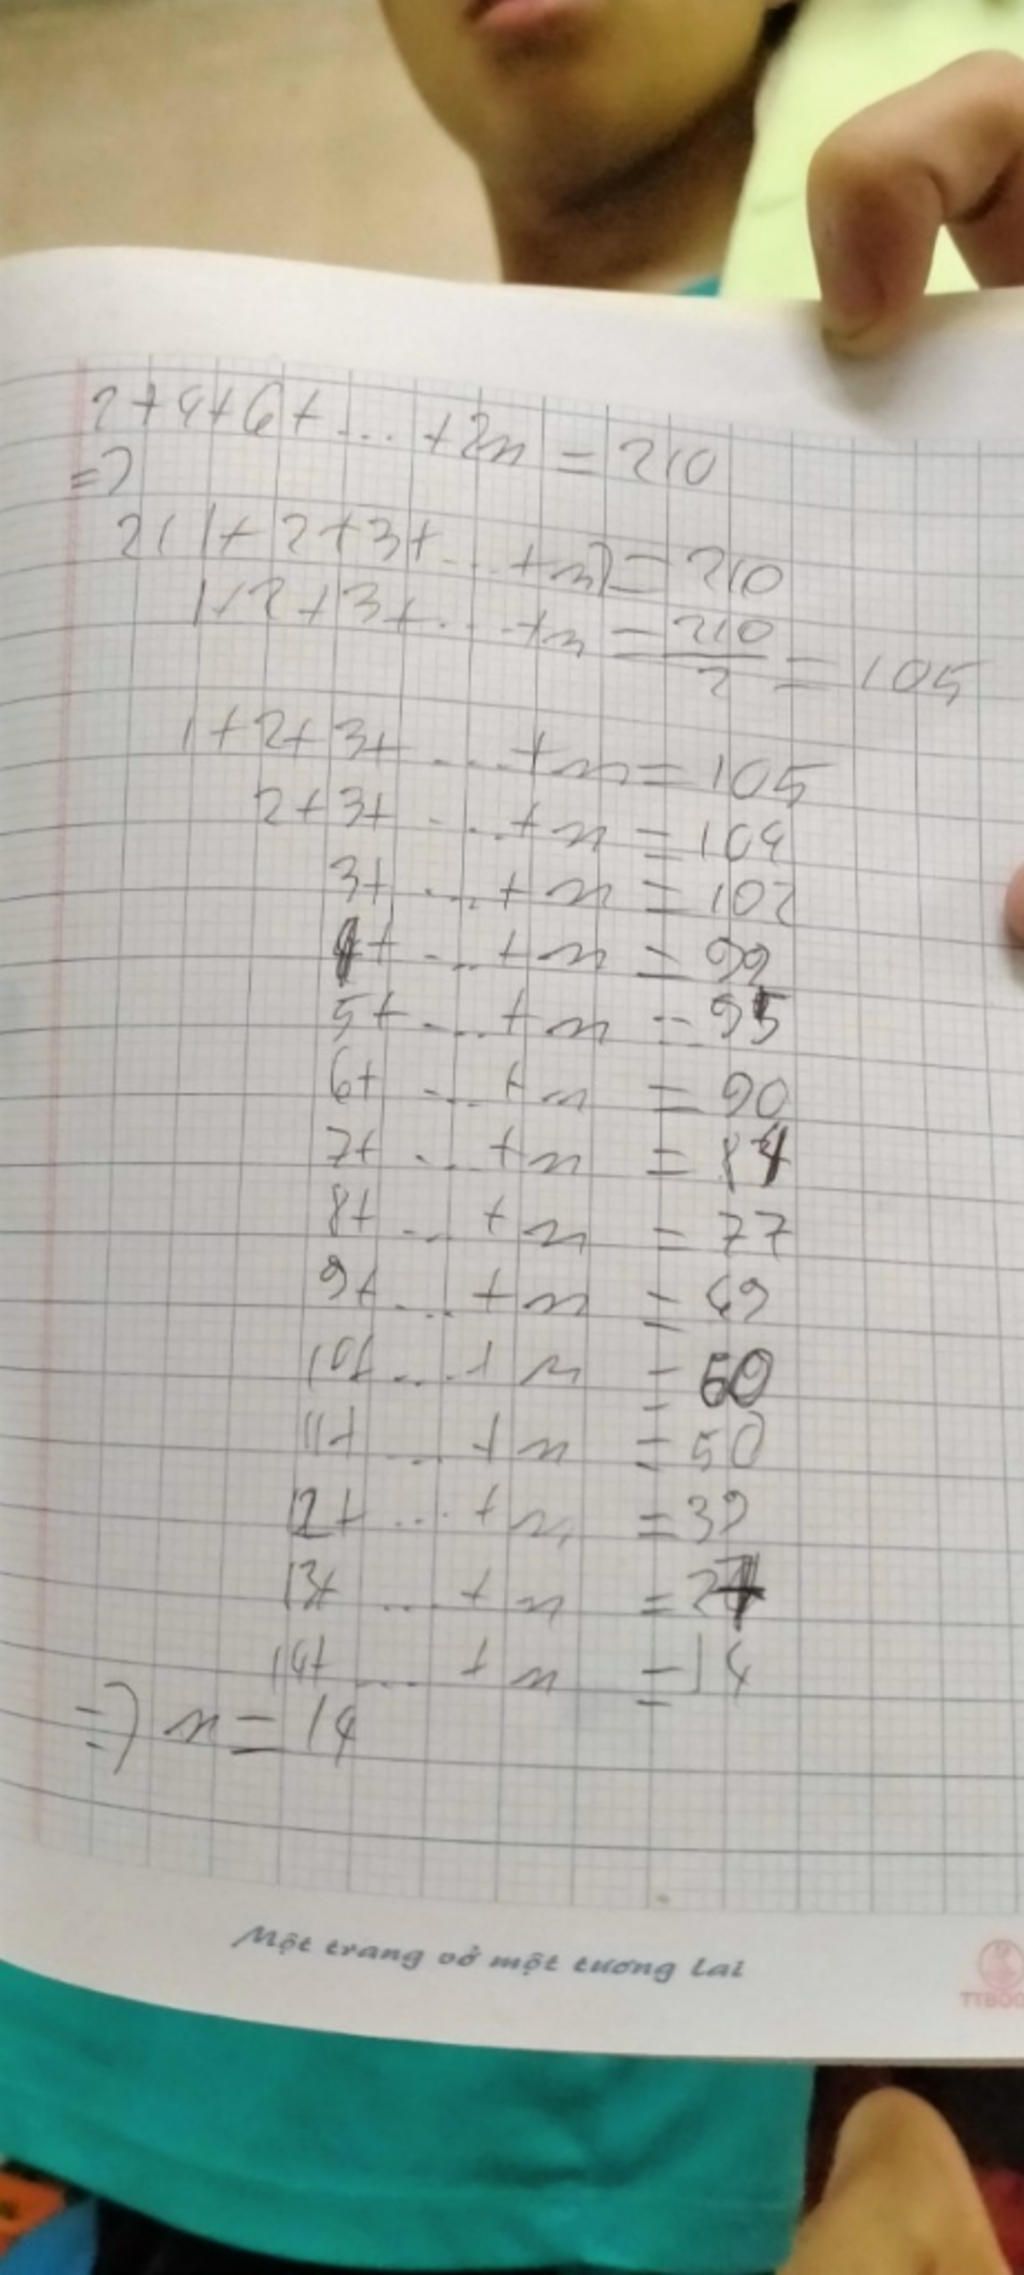 2+4+6+ ... +2n = 210
=>
2(1+2+3+ ... +n) = 210
1+2+3+ ... +n = 210/2 = 105
1+2+3+ ... +n = 105
2+3+ ... +n = 104
3+ ... +n = 102
4+ ... +n = 99
5+ ... +n = 95
6+ ... +n = 90
7+ ... +n = 84
8+ ... +n = 77
9+ ... +n = 69
10+ ... + n = 60
11+ ... +n = 50
12+ ... +n = 39
13+ ... +n = 27
14+ ... +n = 14
=> n = 14
Một trang vở một tương lai